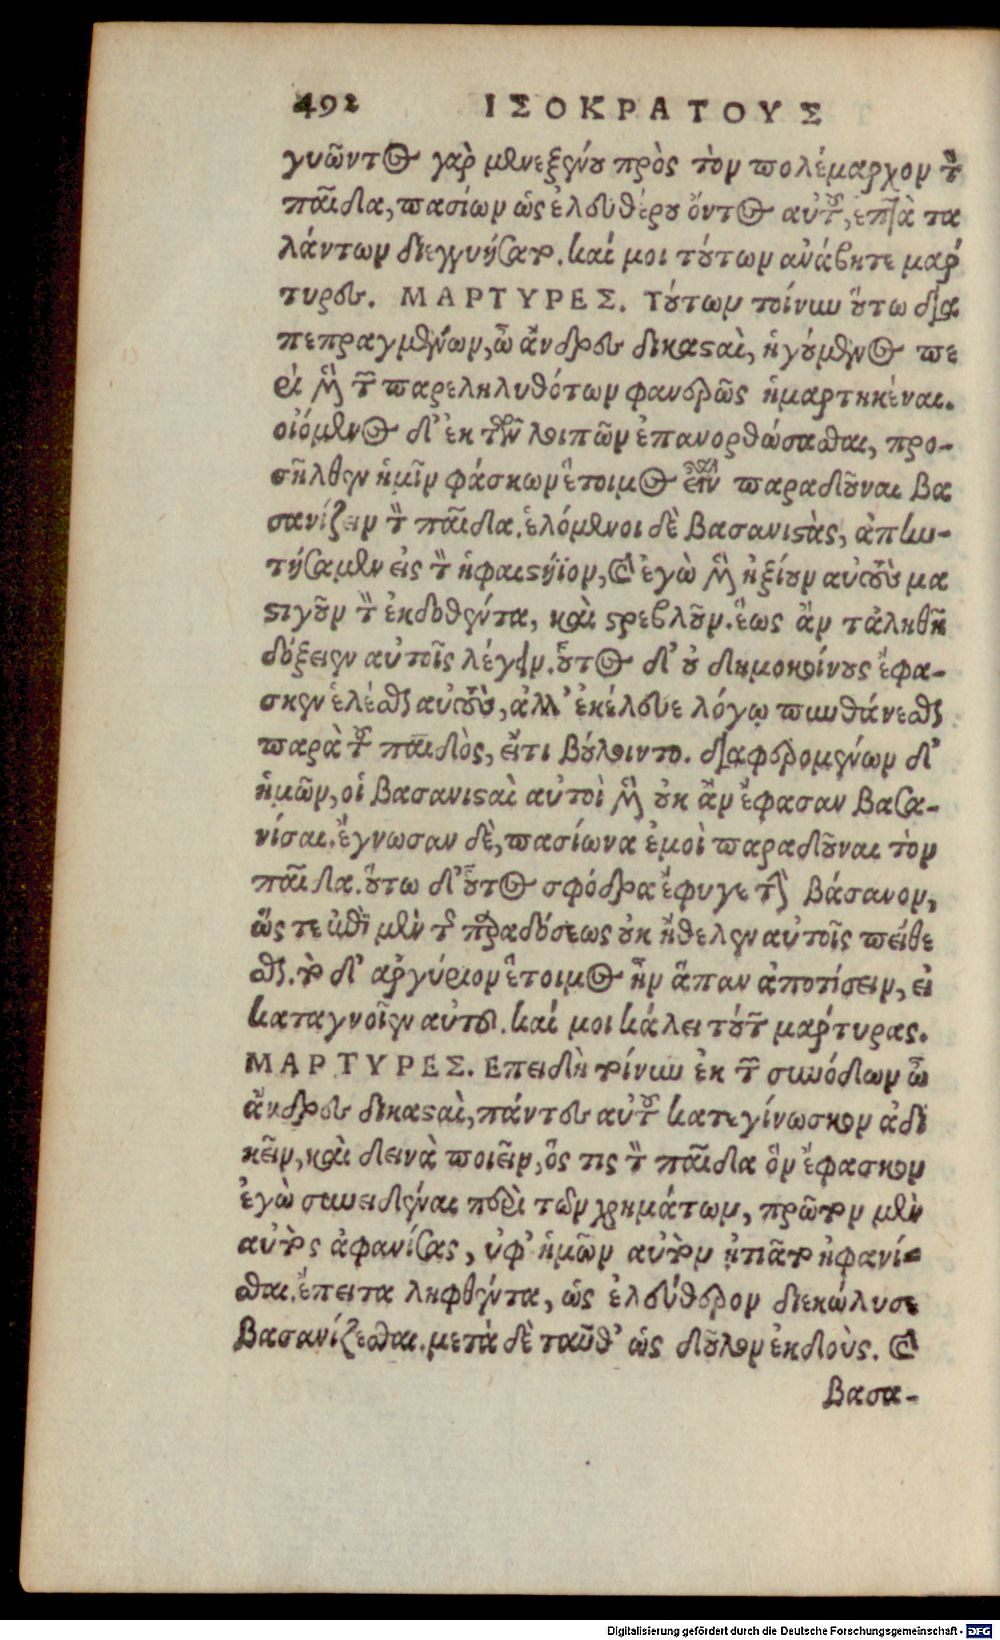 492 ΙΣΟΚΡΑΤΟΥΣ
γυῶντος γὰρ μενεξένου πρὸς τὸν πολέμαρχον τὸν
παῖδα, πασίων ὡς ἐλευθέρου ὄντος αὐτοῦ, ἑπτὰ τα
λάντων διεγγυήσατο. καί μοι τούτων ἀνάβητε μάρ
τυρες. ΜΑΡΤΥΡΕΣ. Τούτων τοίνυν οὕτω δια
πεπραγμένων, ὦ ἄνδρες δικασταὶ, ἡγούμενος πε
ρὶ μὲν τῶν παρεληλυθότων φανερῶς ἡμαρτηκέναι.
οἰόμενος δ' ἐκ τῶν λοιπῶν ἐπανορθώσασθαι, προ-
σῆλθεν ἡμῖν φάσκων ἕτοιμος εἶναι παραδοῦναι βα
σανίζειν τὸν παῖδα. ἑλόμενοι δὲ βασανιστὰς, ἀπην-
τήσαμεν εἰς τὸ ἡφαιστήϊον, καὶ ἐγὼ μὲν ἠξίουν αὐτοὺς μα
στιγοῦν τὸν ἐκδοθέντα, καὶ στρεβλοῦν. ἕως ἂν τἀληθῆ
δόξειεν αὐτοῖς λέγειν. οὗτος δ' οὐ δημοκοίνους ἔφα-
σκεν ἑλέσθαι αὐτοὺς, ἀλλ' ἐκέλευε λόγῳ πυνθάνεσθαι
παρὰ τοῦ παιδὸς, εἴ τι βούλοιντο. διαφερομένων δ'
ἡμῶν, οἱ βασανισταὶ αὐτοὶ μὲν οὐκ ἂν ἔφασαν βασα-
νίσαι. ἔγνωσαν δὲ, πασίωνα ἐμοὶ παραδοῦναι τὸν
παῖδα. οὕτω δ' οὗτος σφόδρα ἔφυγε τὴν βάσανον,
ὥς τε περὶ μὲν τῆς παραδόσεως οὐκ ἤθελεν αὐτοῖς πείθε
σθαι. τὸ δ' ἀργύριον ἕτοιμος ἦν ἅπαν ἀποτίσειν, εἰ
καταγνοῖεν αὐτοῦ. καί μοι κάλει τούτων μάρτυρας.
ΜΑΡΤΥΡΕΣ. Επειδὴ τοίνυν ἐκ τῶν συνόδων ὦ
ἄνδρες δικασταὶ, πάντες αὐτοῦ κατεγίνωσκον ἀδι
κεῖν, καὶ δεινὰ ποιεῖν, ὅς τις τὸν παῖδα ὃν ἔφασκον
ἐγὼ συνειδέναι περὶ τῶν χρημάτων, πρῶτον μὲν
αὐτὸς ἀφανίσας, ὑφ' ἡμῶν αὐτὸν ᾐτιᾶτο ἠφανί-
σθαι. ἔπειτα ληφθέντα, ὡς ἐλεύθερον διεκώλυσε
βασανίζεσθαι. μετὰ δὲ ταῦθ' ὡς δοῦλον ἐκδοὺς. καὶ
βασα-
Digitalisierung gefördert durch die Deutsche Forschungsgemeinschaft - DFG